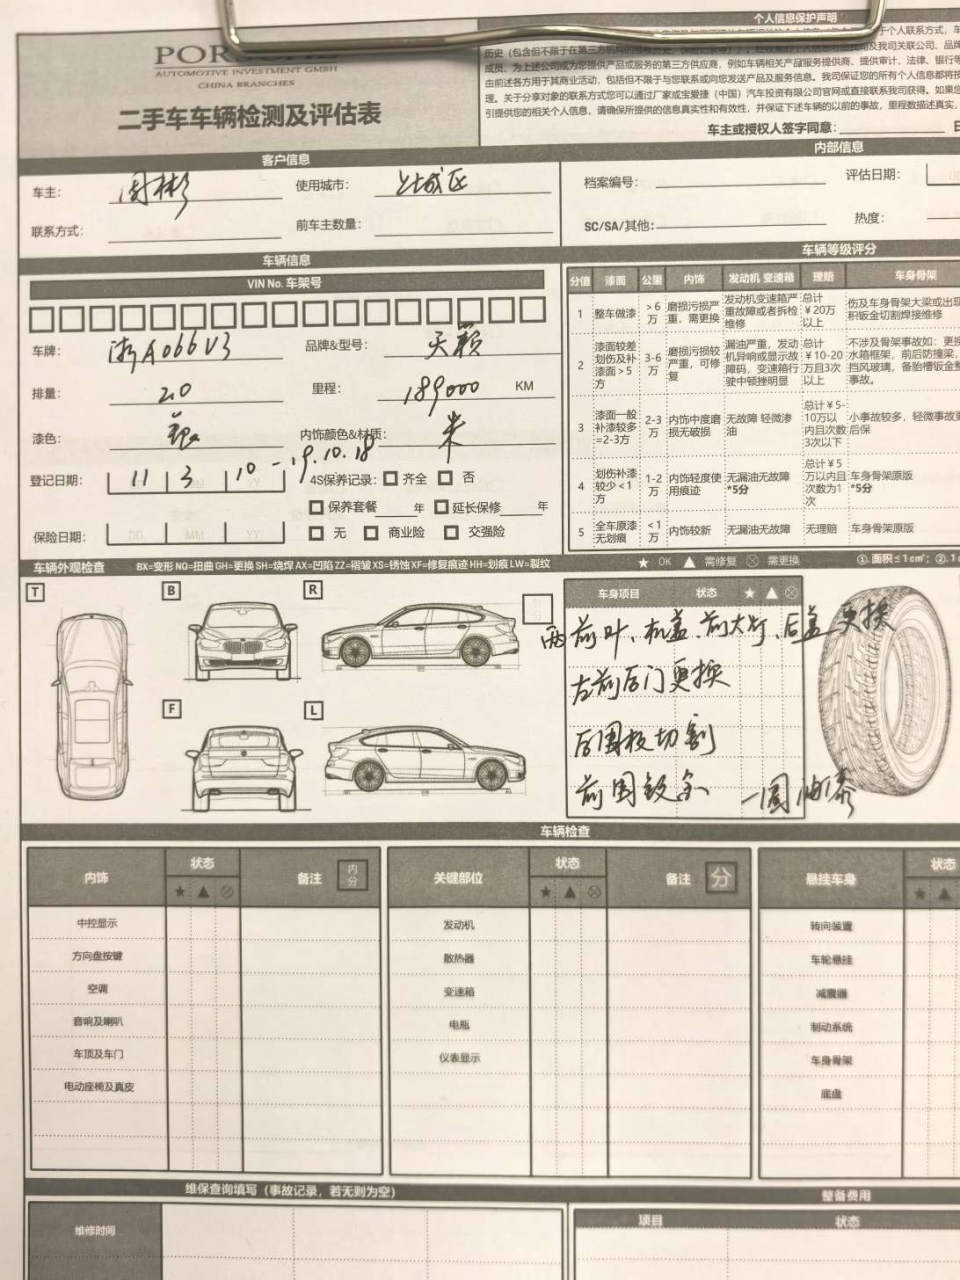 个人信息保护声明
POR
AUTOMOTIVE INVESTMENT GMBH
CHINA BRANCHES
二手车车辆检测及评估表
成员。为上述公司或为您提供产品或服务的第三方供应商，例如车辆相关产品服务提供商、提供审计、法律、银行等
由前述各方用于其商业活动，包括但不限于与您联系或向您发送产品及服务信息。我司保证您的所有个人信息都将按
理。关于分享对象的联系方式您可以通过厂家或宝爱捷（中国）汽车投资有限公司官网或直接联系我司获得。如果您
引提供您的相关个人信息，请确保所提供的信息真实性和有效性，并保证下述车辆的以前的事故，里程数描述真实，
车主或授权人签字同意：
客户信息
内部信息
车主： 周彬 使用城市： 上城区
档案编号： 评估日期：
联系方式： 前车主数量：
SC/SA/其他： 热度：
车辆信息
车辆等级评分
VIN No. 车架号
分值 漆面 公里 内饰 发动机 变速箱 理赔 车身骨架
1 整车做漆 >6万 磨损污损严重，需更换 发动机变速箱严重故障或者拆检维修 总计￥20万以上 伤及车身骨架大梁或出现 积钣金切割焊接维修
车牌： 浙A066V3 品牌&型号： 天籁
2 漆面较差划伤及补漆面>5方 3-6万 磨损污损较严重，可修复 漏油严重，发动机异响或显示故障码，变速箱行驶中顿挫明显 总计￥10-20万且3次以上 不涉及骨架事故如：更换 水箱框架，前后防撞梁， 挡风玻璃，备胎槽钣金整 事故。
排量： 2.0 里程： 189000 KM
3 漆面一般补漆较多=2-3方 2-3万 内饰中度磨损无破损 无故障 轻微渗油 总计￥5-10万以内且次数3次以下 小事故较多，轻微事故更 后保
漆色： 银 内饰颜色&材质： 米
4 划伤补漆较少<1方 1-2万 内饰轻度使用痕迹 无漏油无故障 *5分 总计￥5万以内且次数为1次 车身骨架原版 *5分
登记日期： 11 3 10 -19.10.18 4S保养记录： 齐全 否
MM YY
保养套餐 年 延长保修 年
5 全车原漆无划痕 <1万 内饰较新 无漏油无故障 无理赔 车身骨架原版
保险日期： DD MM YY 无 商业险 交强险
车辆外观检查 BX=变形 NQ=扭曲 GH=更换 SH=烧焊 AX=凹陷 ZZ=褶皱 XS=锈蚀 XF=修复痕迹 HH=划痕 LW=裂纹 ★ OK ▲ 需修复 ⊗ 需更换 ①. 面积≤1cm²；②.1c
T B R
车身项目 状态 ★ ▲ ⊗
两前叶、机盖、前大灯、后盖更换
左前后门更换
F L
后围板切割
前围钣金 一圈油漆
车辆检查
内饰 状态 备注 内分 关键部位 状态 备注 分 悬挂车身 状态
★ ▲ ⊗ ★ ▲ ⊗ ★ ▲
中控显示 发动机 转向装置
方向盘按键 散热器 车轮悬挂
空调 变速箱 减震器
音响及喇叭 电瓶 制动系统
车顶及车门 仪表显示 车身骨架
电动座椅及真皮 底盘
维保查询填写（事故记录，若无则为空）
整备费用
维修时间
项目 状态